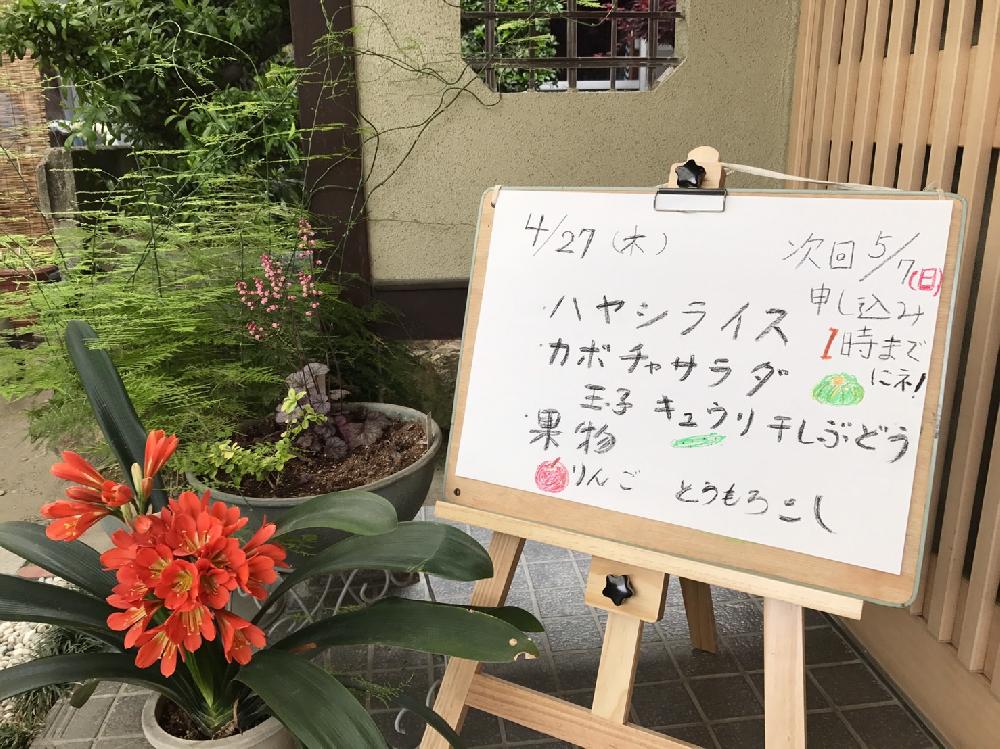 4/27(木)
次回 5/7(日)
申し込み
1時まで
にネ!
・ハヤシライス
・カボチャサラダ
玉子 キュウリ 干しぶどう
・果物
りんご とうもろこし